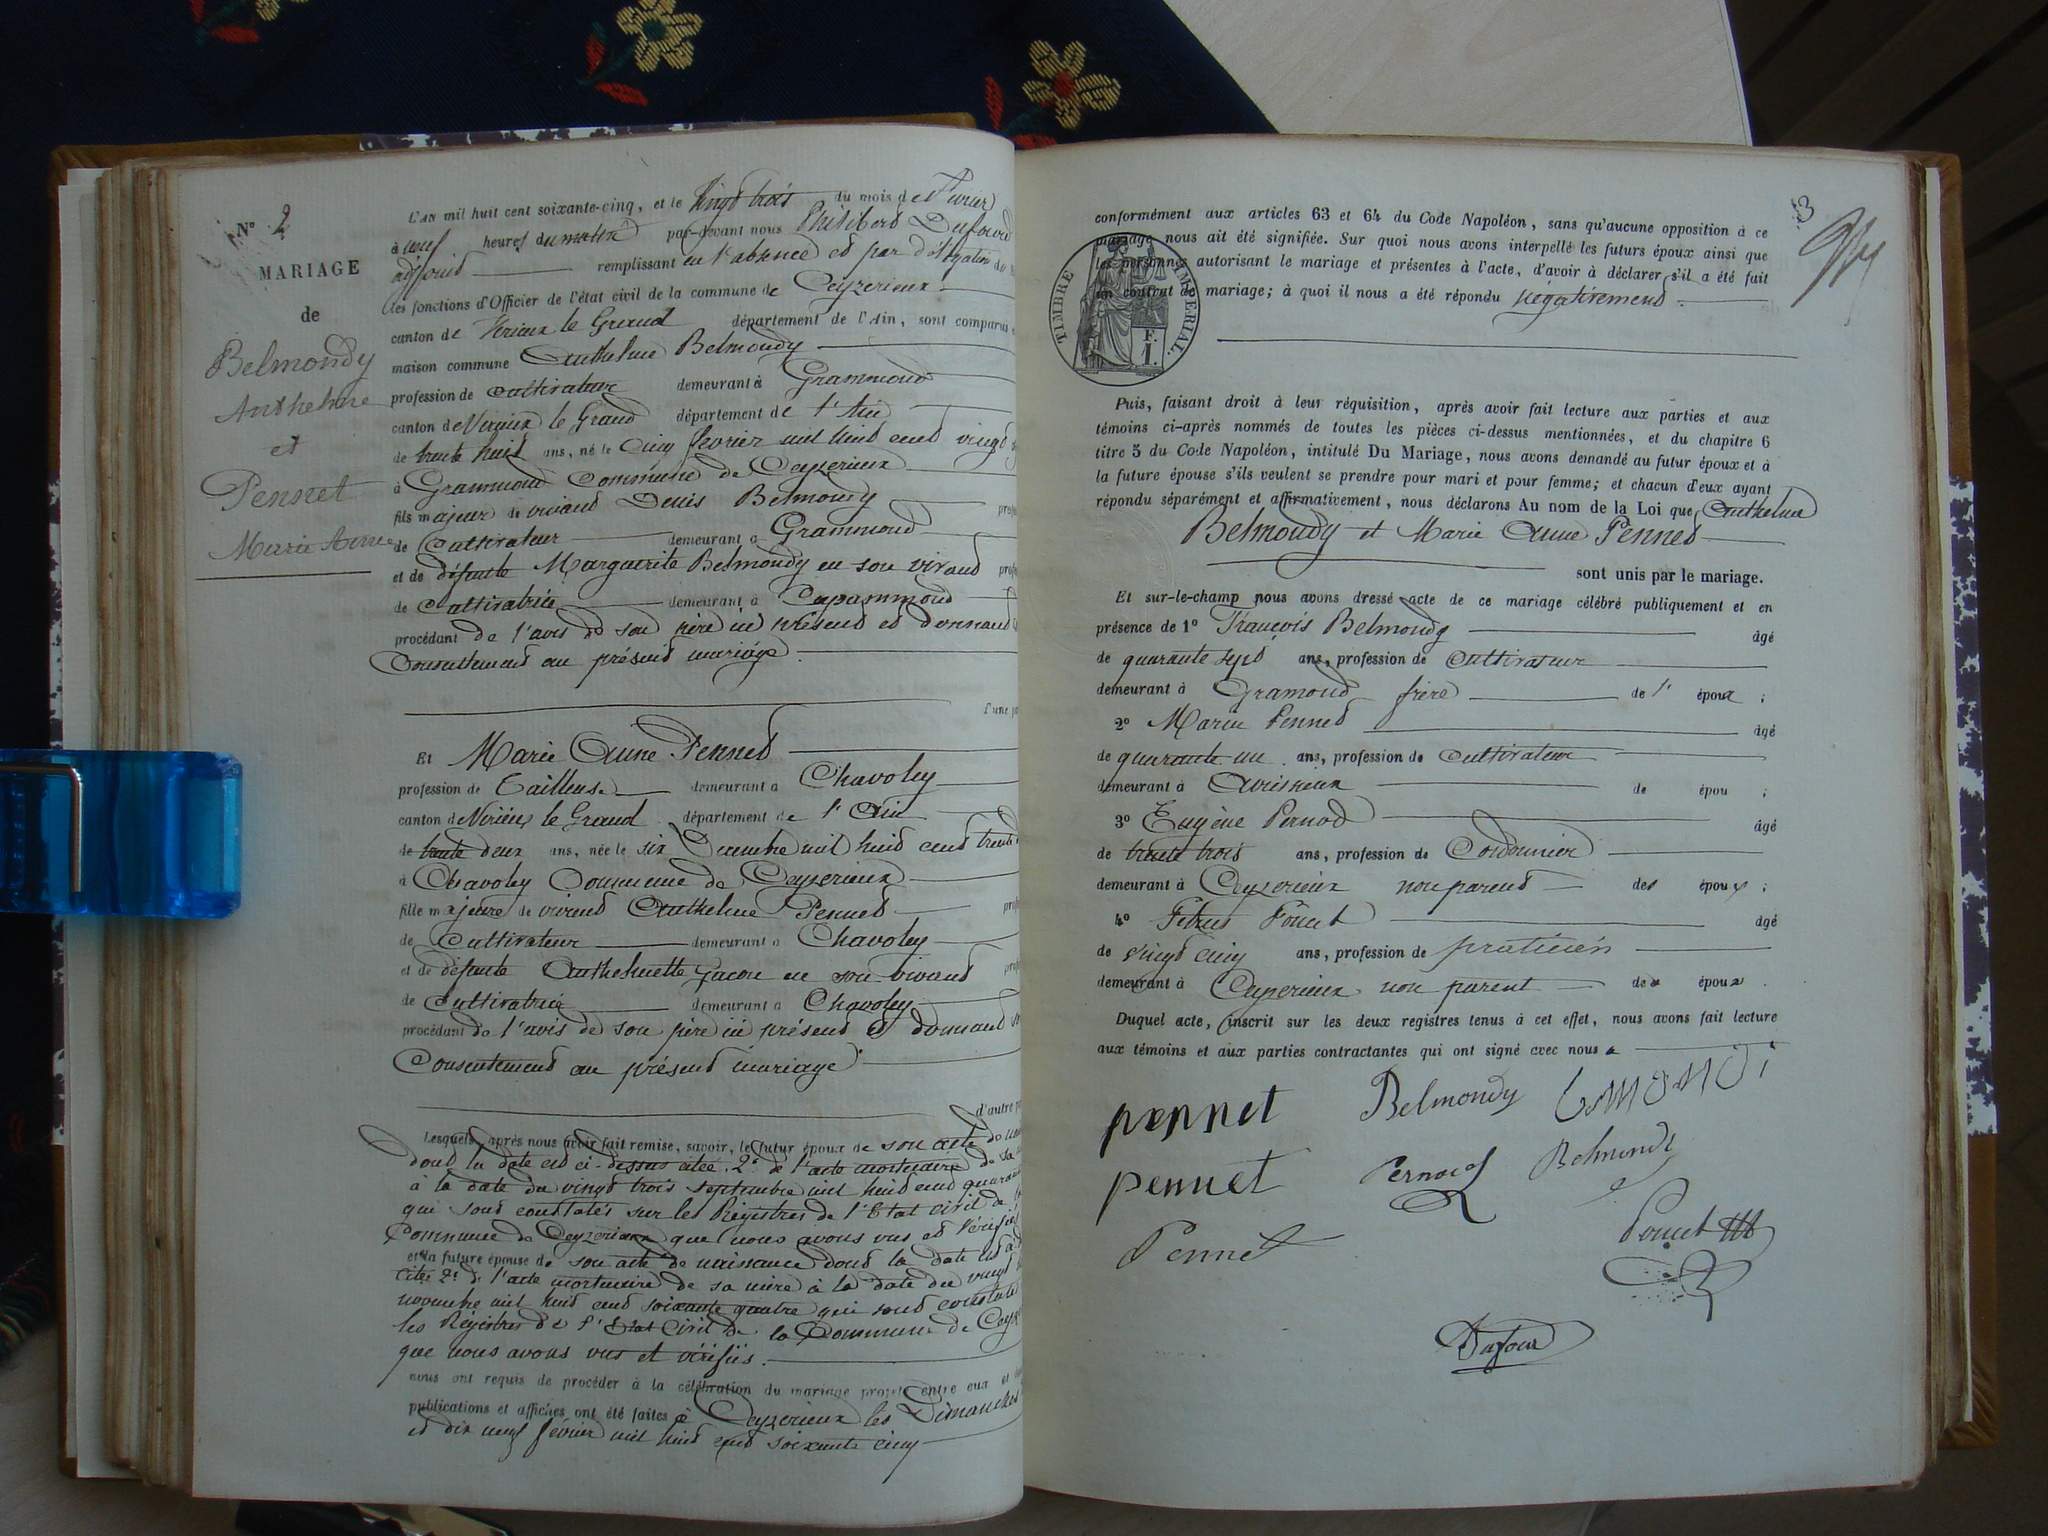 N° 2
MARIAGE
de
Belmondy
Anthelme
et
Pennet
Marie Anne
L'an mil huit cent soixante-cinq, et le vingt trois du mois de Fevrier
à neuf heures du matin par-devant nous Philibert Dufour
adjoint remplissant en l'absence et par délégation du
les fonctions d'Officier de l'état civil de la commune de Ceyzerieux
canton de Virieux le Grand département de l'Ain, sont comparus
maison commune Anthelme Belmondy
profession de Cultivateur demeurant à Grammond
canton de Virieux le Grand département de l'Ain
de trente huit ans, né le Cinq fevrier mil huit cent vingt
à Grammond Commune de Ceyzerieux
fils majeur de vivant Denis Belmondy
de Cultivateur demeurant à Grammond
et de défunte Marguerite Belmondy en son vivant
de Cultivatrice demeurant à
procédant de l'avis de son père ici présent et donnant
Consentement au présent mariage.
d'une
Et Marie Anne Pennet
profession de Tailleuse demeurant à Chavoley
canton de Virieux le Grand département de l'Ain
de trente deux ans, née le six Decembre mil huit cent trente
à Chavoley Commune de Ceyzerieux
fille majeure de vivant Anthelme Pennet
de Cultivateur demeurant à Chavoley
et de défunte Anthelmette Gacon en son vivant
de Cultivatrice demeurant à Chavoley
procédant de l'avis de son père ici présent et donnant
Consentement au présent mariage
d'autre
Lesquels, après nous avoir fait remise, savoir, le futur époux de son acte de
dont la date est ci-dessus citée. 2° de l'acte mortuaire de sa
à la date du vingt trois septembre mil huit cent
qui sont constatés sur les Régistres de l'Etat civil de la
Commune de Ceyzerieux que nous avons vus et Vérifiés
et la future épouse de son acte de naissance dont la date est
citée 2° de l'acte mortuaire de sa mère à la date du vingt
novembre mil huit cent soixante quatre qui sont constatés
les Régistres de l'Etat Civil de la Commune de
que nous avons vus et vérifiés.
nous ont requis de procéder à la célébration du mariage projeté entre eux et
publications et affiches ont été faites à Ceyzerieux les Dimanches
et dix neuf février mil huit cent soixante cinq
3
conformément aux articles 63 et 64 du Code Napoléon, sans qu'aucune opposition à ce
mariage nous ait été signifiée. Sur quoi nous avons interpellé les futurs époux ainsi que
les personnes autorisant le mariage et présentes à l'acte, d'avoir à déclarer s'il a été fait
un contrat de mariage; à quoi il nous a été répondu négativement.
TIMBRE IMPERIAL.
F.
1.
Puis, faisant droit à leur réquisition, après avoir fait lecture aux parties et aux
témoins ci-après nommés de toutes les pièces ci-dessus mentionnées, et du chapitre 6
titre 5 du Code Napoléon, intitulé Du Mariage, nous avons demandé au futur époux et à
la future épouse s'ils veulent se prendre pour mari et pour femme; et chacun d'eux ayant
répondu séparément et affirmativement, nous déclarons Au nom de la Loi que Anthelme
Belmondy et Marie Anne Pennet
sont unis par le mariage.
Et sur-le-champ nous avons dressé acte de ce mariage célébré publiquement et en
présence de 1° François Belmondy âgé
de quarante sept ans, profession de Cultivateur
demeurant à Gramond frère de l' époux ;
2° Marin Pennet âgé
de quarante un ans, profession de Cultivateur
demeurant à Avrissieux de épou ;
3° Eugène Pernod âgé
de trente trois ans, profession de Cordonnier
demeurant à Ceyzerieux non parent des époux ;
4° Poncet âgé
de vingt cinq ans, profession de praticien
demeurant à Ceyzerieux non parent des époux .
Duquel acte, inscrit sur les deux registres tenus à cet effet, nous avons fait lecture
aux témoins et aux parties contractantes qui ont signé avec nous
pennet Belmondy
pennet Pernod Belmondy
Pennet Poncet
Dufour